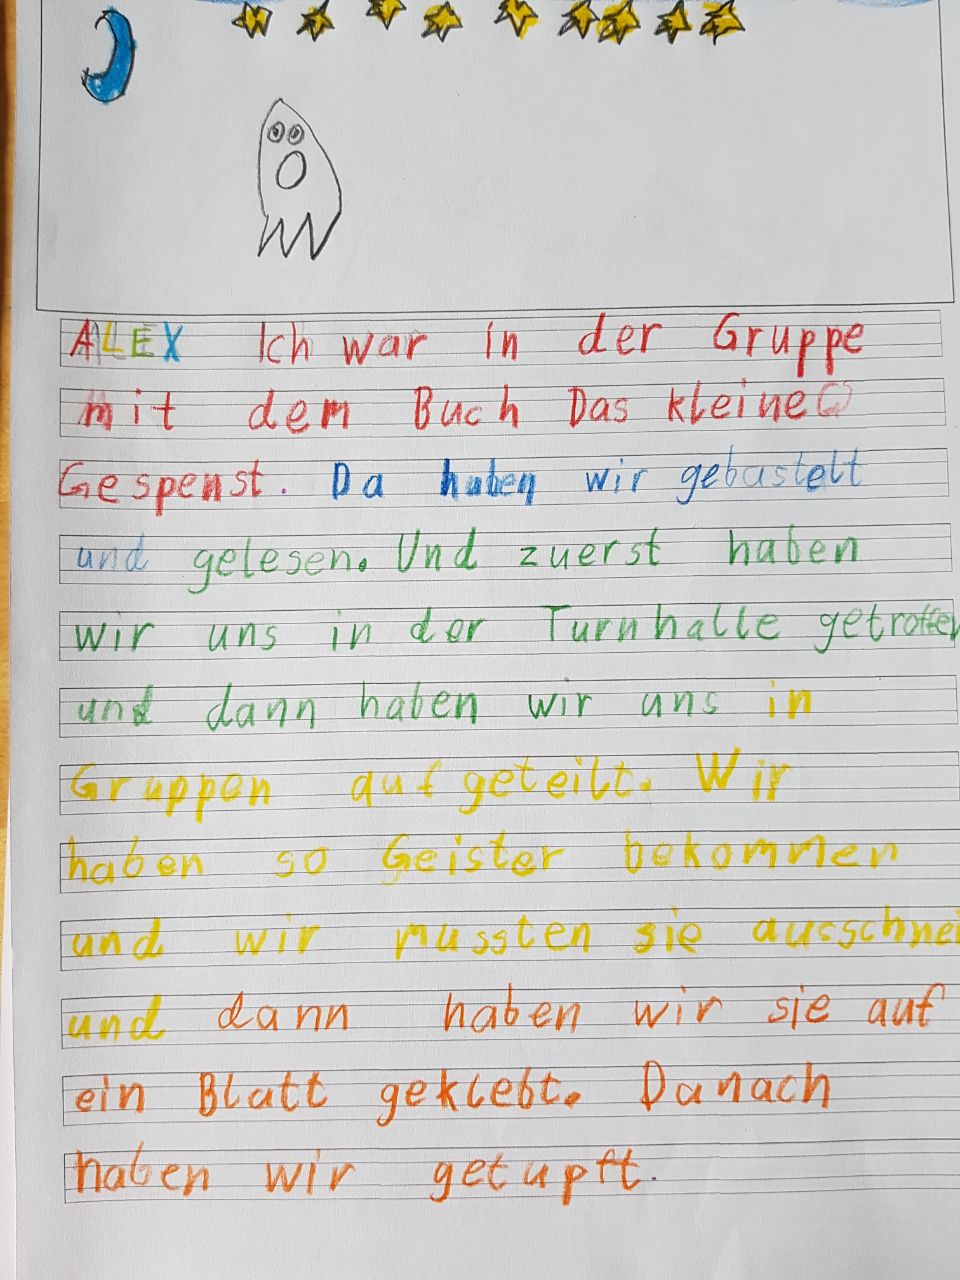 ALEX Ich war in der Gruppe
mit dem Buch Das kleine
Gespenst. Da haben wir gebastelt
und gelesen. Und zuerst haben
wir uns in der Turnhalle getroffen
und dann haben wir uns in
Gruppen aufgeteilt. Wir
haben so Geister bekommen
und wir mussten sie ausschnei
und dann haben wir sie auf
ein Blatt geklebt. Danach
haben wir getupft.